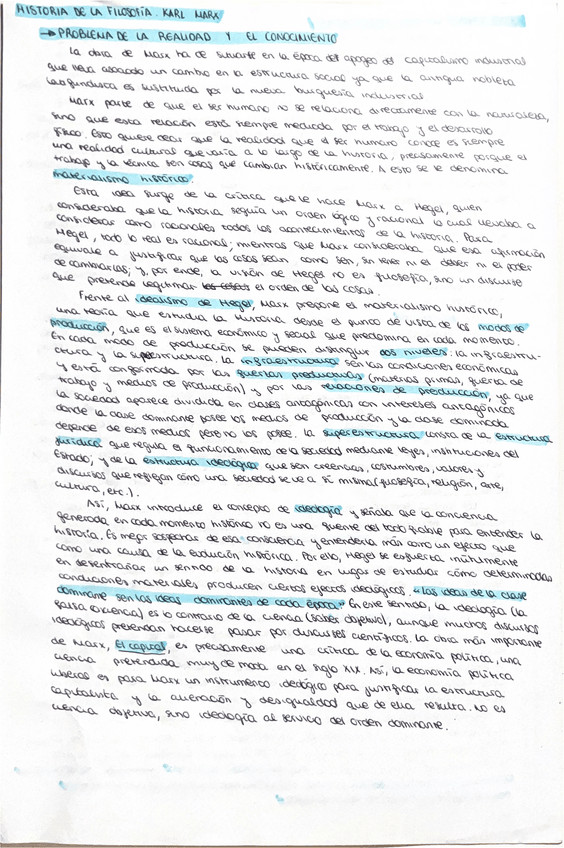 HISTORIA DE LA FILOSOFÍA. KARL MARX
→ PROBLEMA DE LA REALIDAD Y EL CONOCIMIENTO
La obra de Marx ha de situarse en la época del apogeo del capitalismo industrial
que lleva asociado un cambio en la estructura social ya que la antigua nobleza
latifundista es sustituida por la nueva burguesía industrial
Marx parte de que el ser humano no se relaciona directamente con la naturaleza,
sino que esta relación está siempre mediada por el trabajo y el desarrollo
técnico. Esto quiere decir que la realidad que el ser humano conoce es siempre
una realidad cultural que varía a lo largo de la historia, precisamente porque el
trabajo y la técnica son cosas que cambian históricamente. A esto se le denomina
materialismo histórico.
Esta idea surge de la crítica que le hace Marx a Hegel, quien
consideraba que la historia seguía un orden lógico y racional lo cual llevaba a
considerar como racionales todos los acontecimientos de la historia. Para
Hegel, todo lo real es racional; mientras que Marx consideraba que esa afirmación
equivale a justificar que las cosas sean como son, sin tener ni el deber ni el poder
de cambiarlas; y, por ende, la visión de Hegel no es filosofía, sino un discurso
que pretende legitimar el orden de las cosas.
Frente al idealismo de Hegel, Marx propone el materialismo histórico,
una teoría que estudia la historia desde el punto de vista de los modos de
producción, que es el sistema económico y social que predomina en cada momento.
En cada modo de producción se pueden distinguir dos niveles: la infraestru-
ctura y la superestructura. La infraestructura son las condiciones económicas
y está conformada por las fuerzas productivas (materias primas, fuerza de
trabajo y medios de producción) y por las relaciones de producción, ya que
la sociedad aparece dividida en clases antagónicas con intereses antagónicos
donde la clase dominante posee los medios de producción y la clase dominada
depende de esos medios pero no los posee. La superestructura consta de la estructura
jurídica que regula el funcionamiento de la sociedad mediante leyes, instituciones del
Estado; y de la estructura ideológica que son creencias, costumbres, valores y
discursos que reflejan cómo una sociedad se ve a sí misma (filosofía, religión, arte,
cultura, etc.).
Así, Marx introduce el concepto de ideología y señala que la conciencia
generada en cada momento histórico no es una fuente del todo fiable para entender la
historia. Es mejor sospechar de esa consciencia y entenderla más como un efecto que
como una causa de la evolución histórica. Por ello, Hegel se esfuerza inútilmente
en desentrañar un sentido de la historia en lugar de estudiar cómo determinadas
condiciones materiales producen ciertos efectos ideológicos. "Las ideas de la clase
dominante son las ideas dominantes de cada época." En este sentido, la ideología (la
falsa conciencia) es lo contrario de la ciencia (saber objetivo), aunque muchos discursos
ideológicos pretendan hacerse pasar por discursos científicos. La obra más importante
de Marx, El capital, es precisamente una crítica de la economía política, una
ciencia pretendida muy de moda en el siglo XIX. Así, la economía política
liberal es para Marx un instrumento ideológico para justificar la estructura
capitalista y la alienación y desigualdad que de ella resulta. No es
ciencia objetiva, sino ideología al servicio del orden dominante.